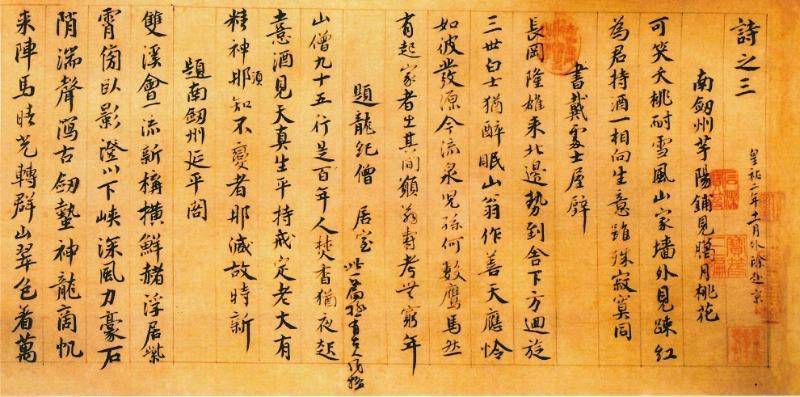 詩之三
皇祐二年十一月外除赴京
南劔州芋陽鋪見臘月桃花
可笑夭桃耐雪風山家墻外見踈紅
為君持酒一相向生意雖殊寂寞同
書戴處士屋壁
長岡隆雄来北邊勢到舍下方迴旋
三世白士猶醉眠山翁作善天應憐
如彼發源今流泉兒孫何數鷹馬然
有起家者出其間願翁壽考無窮年
題龍紀僧居室 此一篇極有古人風格
山僧九十五行是百年人焚香猶夜起
憙酒見天真生平持戒定老大有
精神耶須知不變者耶減故時新
題南劔州延平閣
雙溪會一流新構橫鮮赭浮居紫
霄傍臥影澄川下峽深風力豪石
陗湍聲寫古劔蟄神龍商帆
来陣馬晴光轉群山翠色着萬